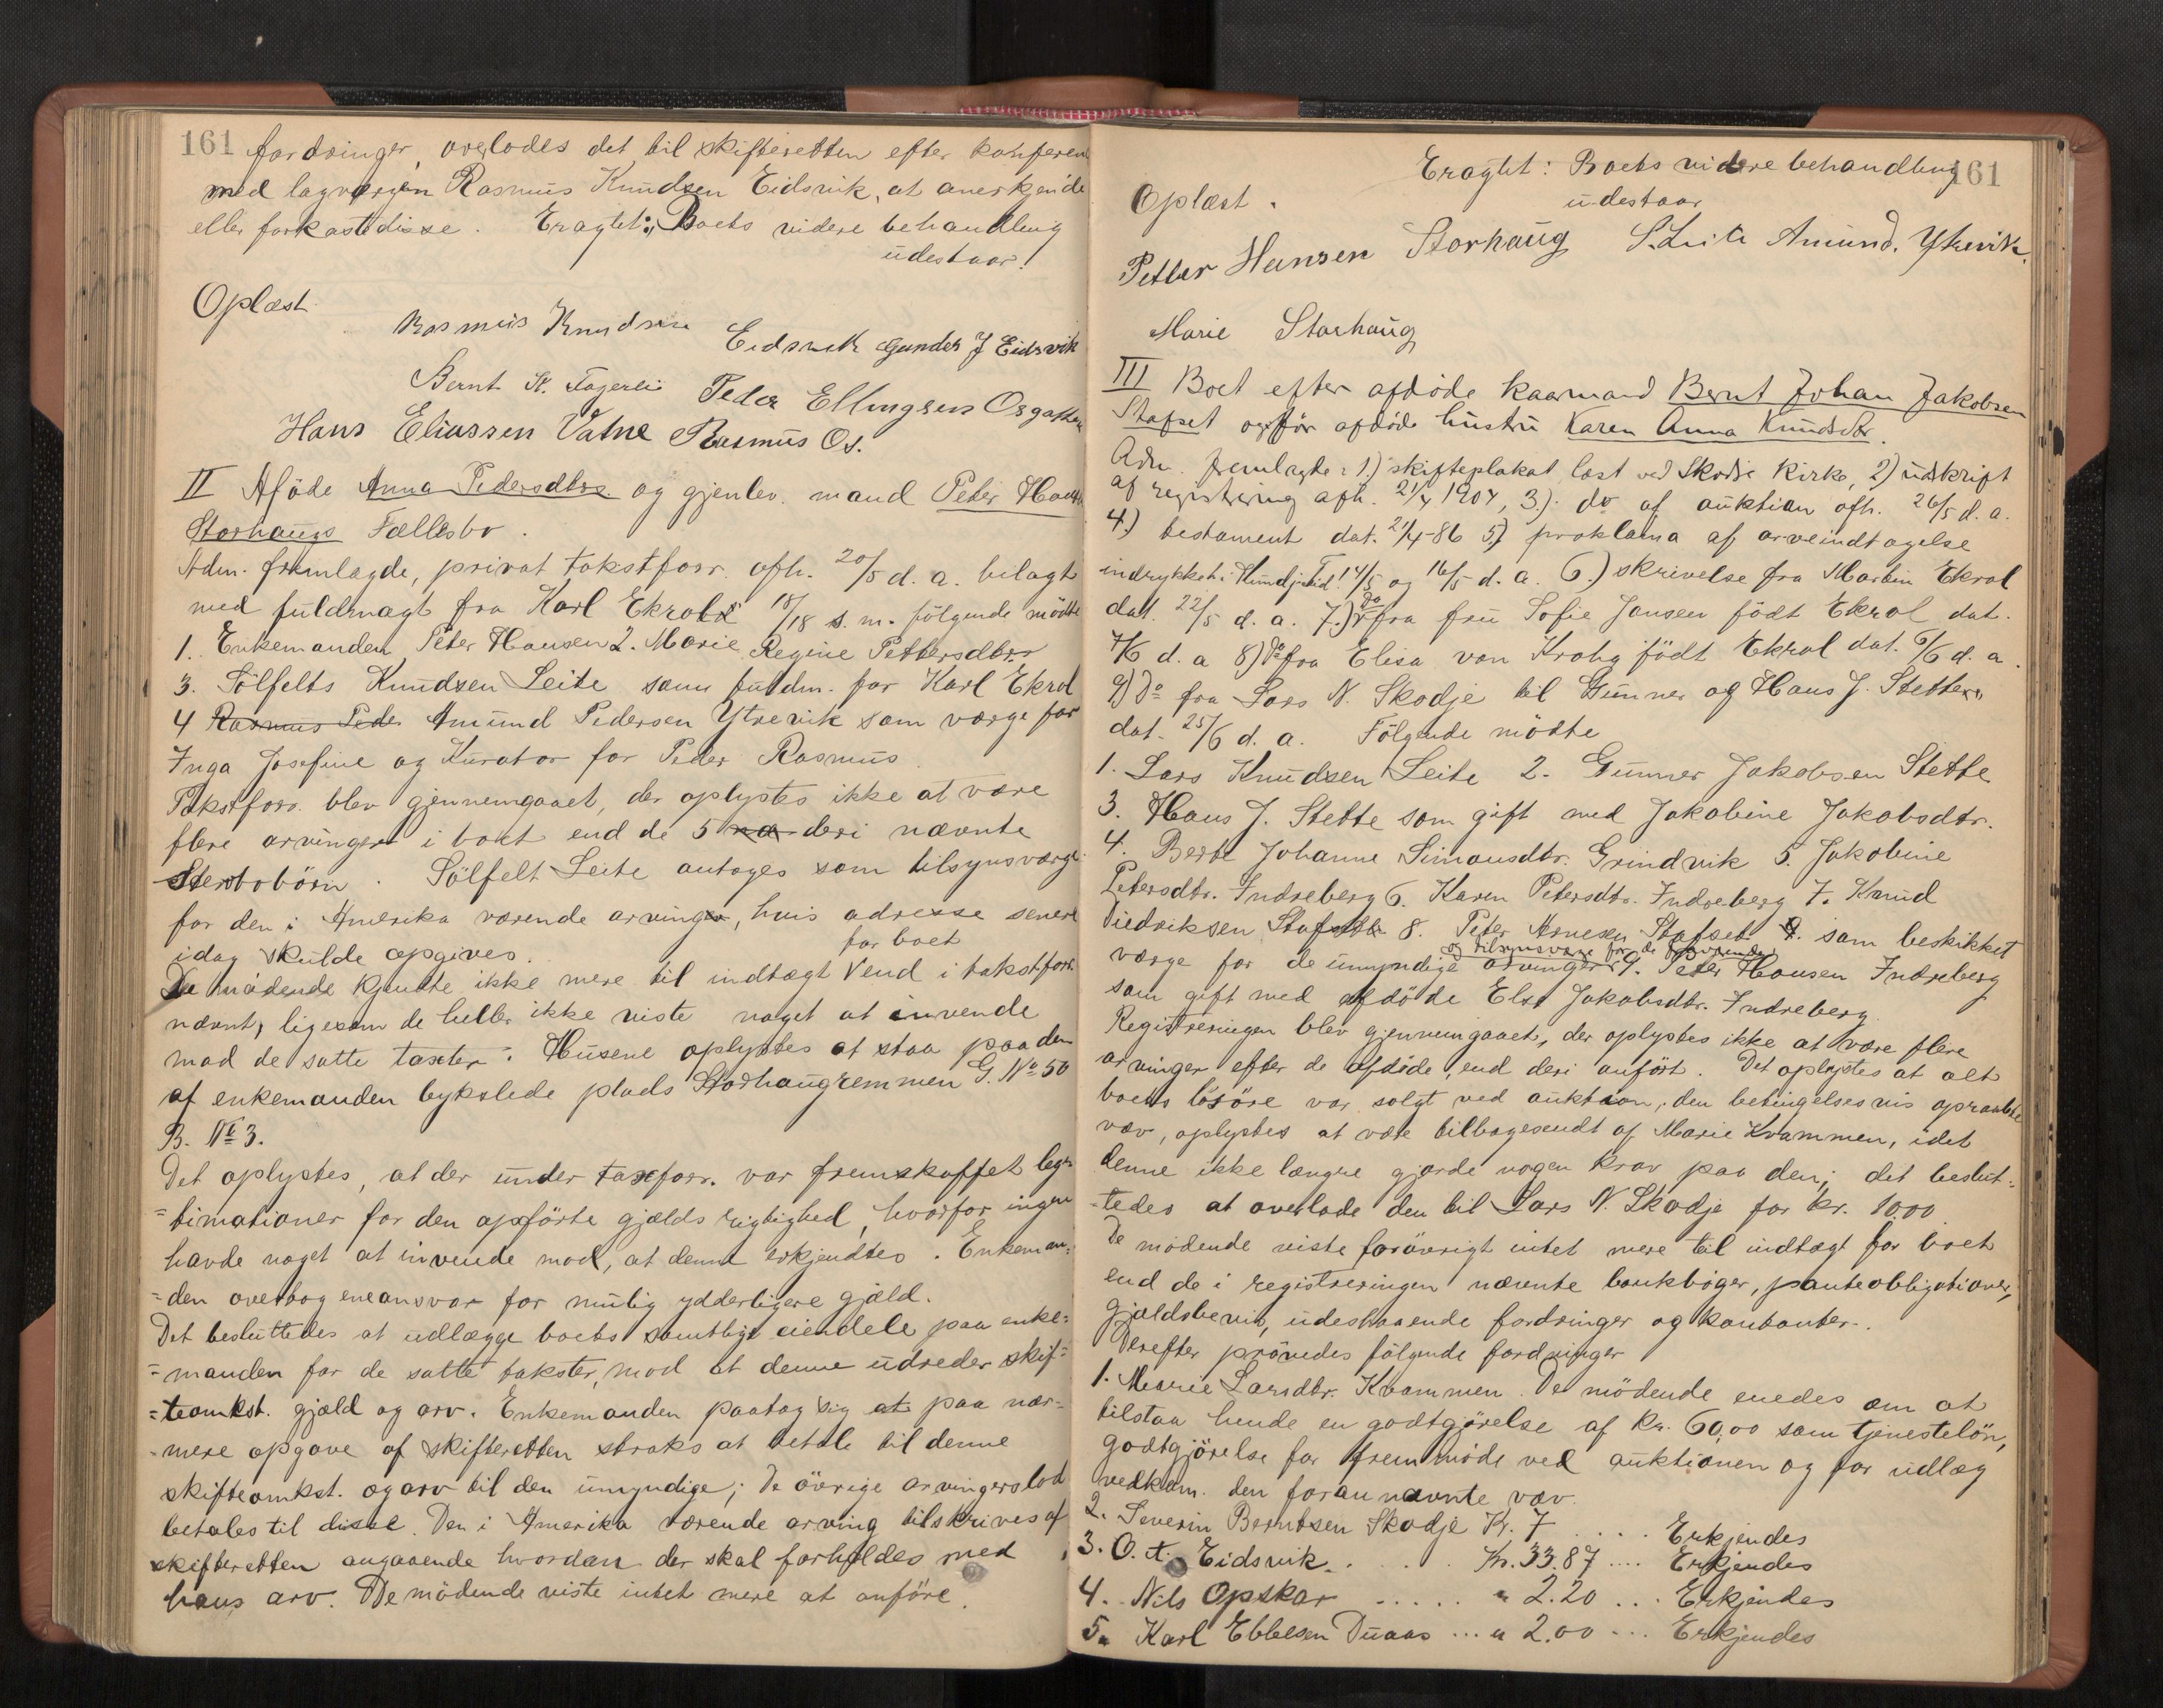 161 fordringer, overlodes det til skifteretten efter konferen
med lagværgen Rasmus Knudsen Eidsvik, at anerkjende
eller forkaste disse. Eragtet: Boets videre behandling
udestaar!
Oplæst
Rasmus Knudsen Eidsvik Gunder J Eidsvik
Bernt St. Fagerli Peder Ellingsen Osgatten
Hans Eliassen Vatne Rasmus Os.
II Aføde Anna Pedersdtrs. og gjenlev. mand Peter Hansen
Storhaugs Fællesbo.
Adm. fremlagde, privat takstforr. afh. 20/5 d. a. bilagt
med fuldmagt fra Karl Ekrold 18/18 s. m. følgende mødte
1. Enkemanden Peter Hansen 2. Marie Regine Pettersdtr.
3. Sölfelts Knudsen Leite som fuldm. for Karl Ekrol
4 Rasmus Peder Amund Pedersen Ytrevik som værge for
Inga Josefine og Kurator for Peder Rasmus.
Takstforr. blev gjennemgaaet, der oplystes ikke at være
flere arvinger i boet end de 5 næ deri nævnte
Sterbobörn. Sölfelt Leite antoges som tilsynsværge
for den i Amerika værende arving, hvis adresse senere
idag skulde opgives.
for boet
De mødende kjendte ikke mere til indtægt V end i takstforr.
nævnt, ligesom de heller ikke viste noget at invende
mod de satte taxter. Husene oplystes at staa paa den
af enkemanden bykslede plads Storhaugremmen G. No 50
B. No 3.
Det oplystes, at der under taxforr. var fremskaffet legi-
=timationer for den opførte gjælds rigtighed, hvorfor ingen
havde noget at invende mod, at denne erkjendtes. Enkeman=
=den overtog eneansvar for mulig ydderligere gjæld.
Det besluttedes at udlægge boets samtlige eiendele paa enke=
=manden for de satte takster, mod at denne udreder skif=
=teomkst. gjæld og arv. Enkemanden paatog sig at paa nær=
=mere opgave af skifteretten straks at betale til denne
skifteomkst. og arv til den umyndige; de övrige arvingers lod
betales til disse. Den i Amerika værende arving tilskrives af
skifteretten angaaende hvordan der skal forholdes med
hans arv. De mödende viste intet mere at anföre.
Eragtet: Boets videre behandling 161
udestaar
Oplæst.
Petter Hansen Storhaug S. Leite Amund. Ytrevik.
Marie Storhaug
III Boet efter afdöde kaarmand Bernt Johan Jakobsen
Stafset og før afdöde hustru Karen Anna Knudsdtr.
Adm. fremlagde: 1.) skifteplakat læst ved Skodje Kirke, 2) udskrift
af registrering afh. 21/4 1904, 3.) do af auktion afh. 26/5 d. a.
4.) testament dat. 21/4-86 5.) proklama af arveindtagelse
indrykket i Kundgj.tid. 14/5 og 16/5 d. a. 6.) skrivelse fra Martin Ekrol
dat. 22/5 d. a. 7.) do fra fru Sofie Jansen födt Ekrol dat.
7/6 d. a 8) Do fra Elisa von Krohg födt Ekrol dat. 6/6 d. a.
9) Do fra Lars N. Skodje til Gunner og Hans J. Stette
dat. 25/6 d. a. Følgende mödte
1. Lars Knudsen Leite 2. Gunner Jakobsen Stette
3. Hans J. Stette som gift med Jakobine Jakobsdtr.
4. Berte Johanne Simonsdtr. Grindvik 5. Jakobine
Petersdtr. Indreberg 6. Karen Petersdtr. Indreberg 7. Knud
Diedriksen Stafset 8. Peter Arnesen Stafset som beskikket
og tilsynsværge for de fraværende
værge for de umyndige arvinger 9. Peter Hansen Indreberg
som gift med afdöde Else Jakobsdtr. Indreberg.
Registreringen blev gjennemgaaet, der oplystes ikke at være flere
arvinger efter de afdöde, end deri anført. Det oplystes at alt
boets lösöre var solgt ved auktion, den betingelsesvis opraabte
væv, oplystes at være tilbagesendt af Marie Kvammen, idet
denne ikke længre gjorde nogen krav paa den; det beslut=
=tedes at overlade den til Lars N. Skodje for kr. 10.00
De mödende viste forövrigt intet mere til indtægt for boet
end de i registreringen nævnte bankböger, panteobligationer,
gjældsbevis, udestaaende fordringer og kontanter.
Derefter prövedes følgende fordringer
1. Marie Larsdtr. Kvammen. De mödende enedes om at
tilstaa hende en godtgörelse af Kr. 60,00 som tjenestelön,
godtgjörelse for fremmöde ved auktionen og for udlæg
vedkom. den forannævnte væv.
2. Severin Berntsen Skodje Kr. 7 .... Erkjendes
3. O. A. Eidsvik. . . . Kr. 33.87 .... Erkjendes
4. Nils Opskar ..... " 2.20 ... Erkjendes
5. Karl Ebbesen Duaas ... " 2.00 ... Erkjendes